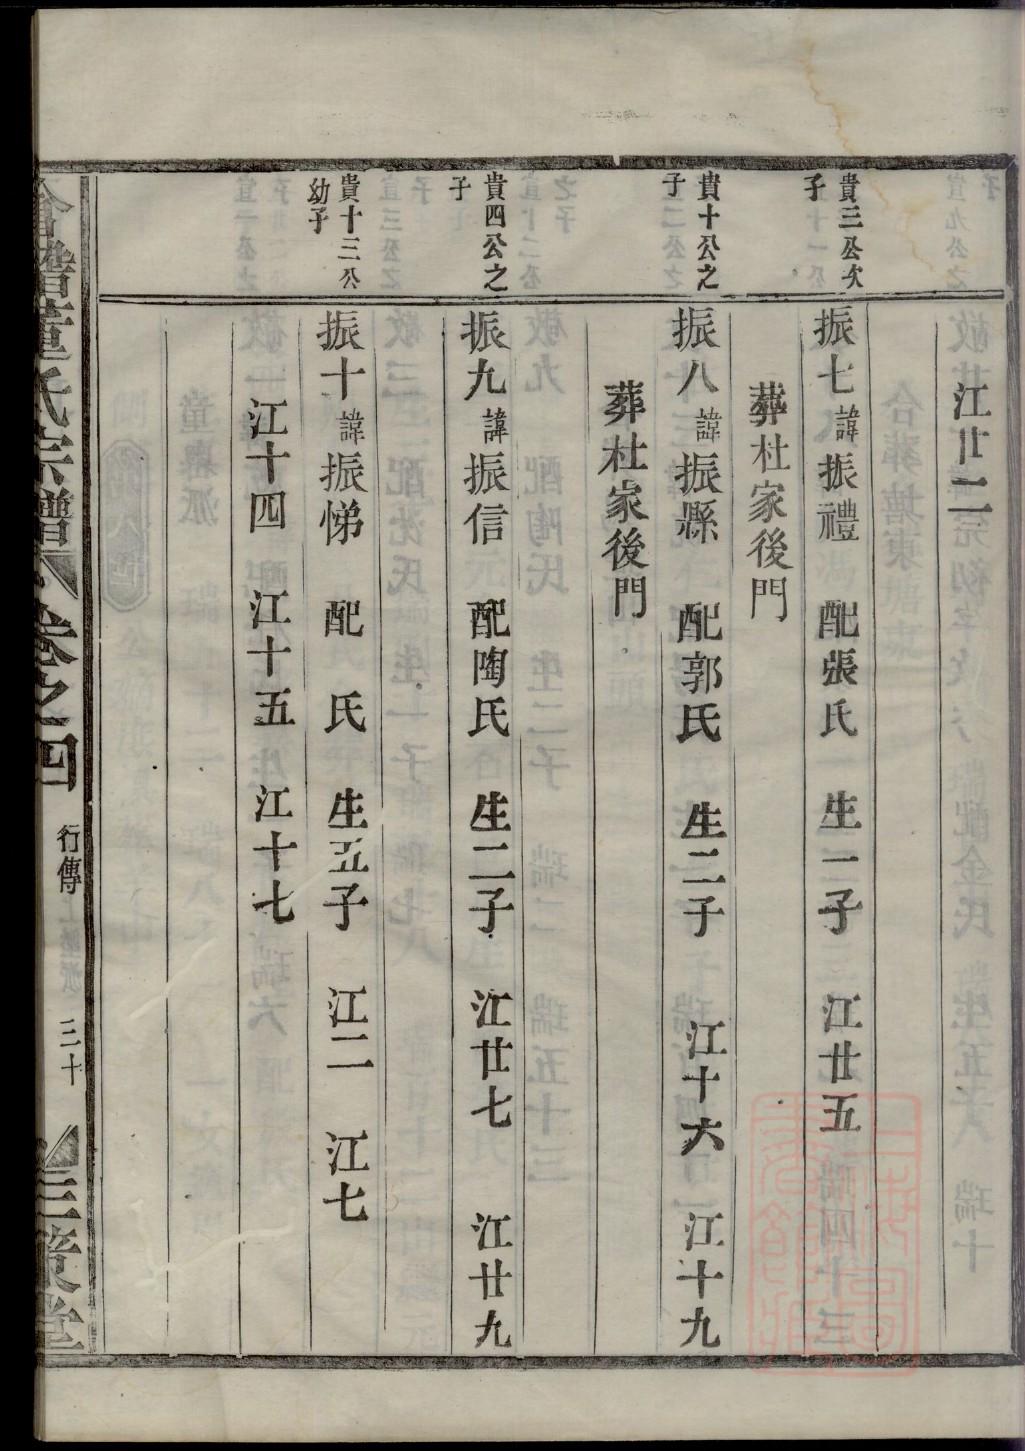 江廿二
貴三公次
子
振七諱振禮 配張氏 生一子 江廿五
葬杜家後門
貴十公之
子
振八諱振縣 配郭氏 生二子 江十六 江十九
葬杜家後門
貴四公之
子
振九諱振信 配陶氏 生二子 江廿七 江廿九
貴十三公
幼子
振十諱振悌 配 氏 生五子 江二 江七
江十四 江十五 江十七
合譜董氏宗譜 卷之四 行傳 三十 三策堂